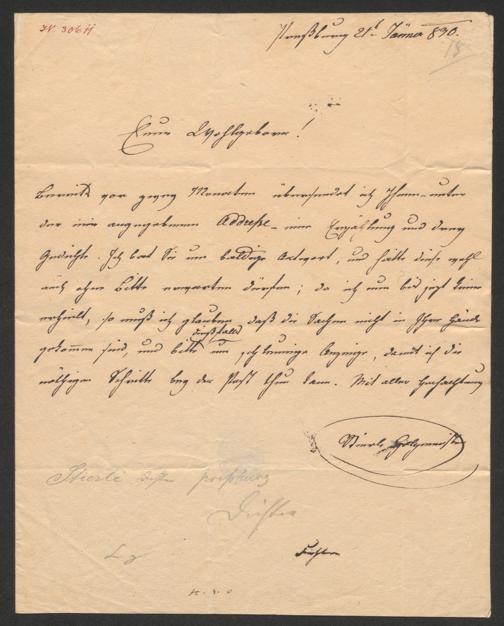 IN. 30611
Preßburg 21t Jänner 830.
18
Euer Wohlgeboren!
Bereits vor zwey Monaten übersendet ich Ihnen – unter
der mir angegebenen Addreße – eine Erzählung und drey
Gedichte. Ich bat Sie um baldige Antwort, und hätte diese wohl
auch ohne Bitte erwarten dürfen; da ich nun bis jetzt keine
erhielt, so muß ich glauben daß die Sachen nicht in Ihre Hände
dießfalls
gekommen sind, und bitte um schleunige Anzeige, damit ich die
nöthigen Schritte bey der Post thun kann. Mit aller Hochachtung
Stierle Holzmeister
Stierle Preßburg
Dichter